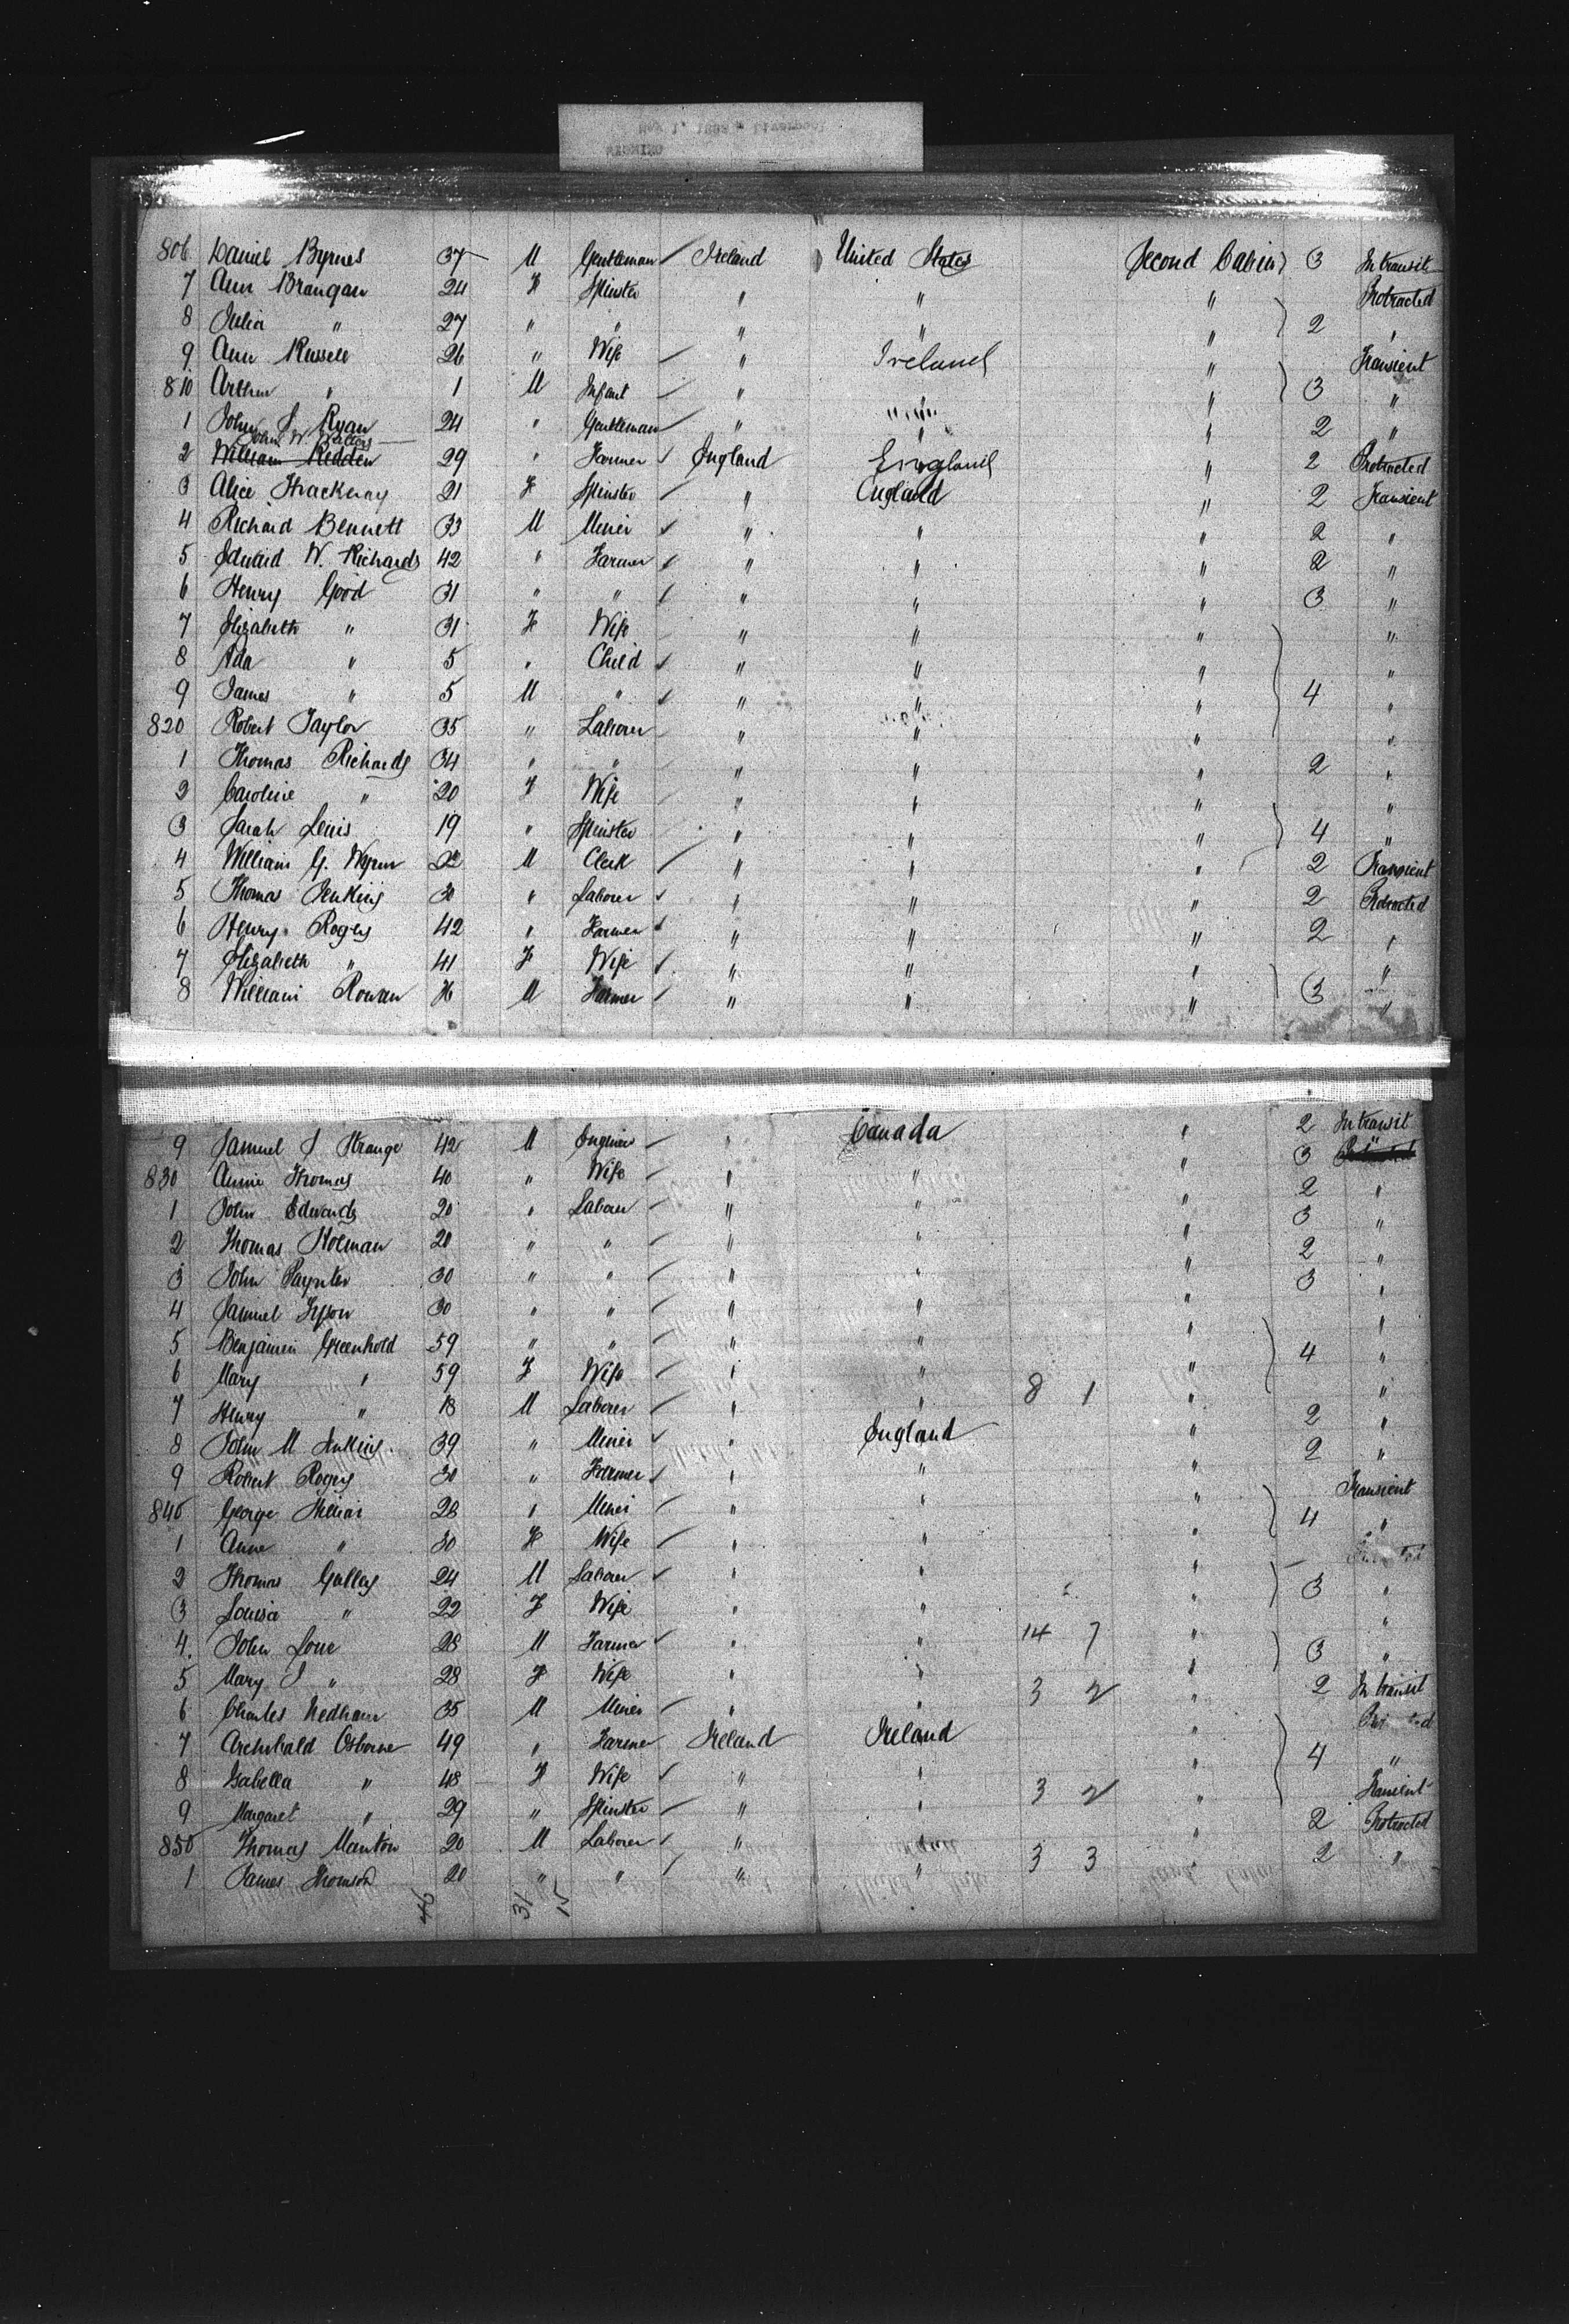 806 Daniel Byrnes 37 M Gentleman Ireland United States Second Cabin 3 In transit
7 Ann Brangan 24 F Spinster " " " Protracted
8 Julia " 27 " " " " " 2 "
9 Ann Russell 26 " Wife " Ireland " Transient
810 Arthur " 1 M Infant " " " 3 "
1 John J Ryan 24 " Gentleman " " " 2 "
John W
2 William Redden 29 " Farmer England England " 2 Protracted
3 Alice 21 F Spinster " England " 2 Transient
4 Richard Bennett 33 M Miner " " " 2 "
5 Edward W. Richards 42 " Farmer " " " 2 "
6 Henry Good 31 " " " " " 3 "
7 Elizabeth " 31 F Wife " " " "
8 Ada " 5 " Child " " " "
9 James " 5 M " " " " 4 "
820 Robert Taylor 35 " Laborer " " " "
1 Thomas Richards 34 " " " " " 2 "
2 Caroline " 20 F Wife " " " "
3 Sarah Lewis 19 " Spinster " " " 4 "
4 William G. 22 M Clerk " " " 2 Transient
5 Thomas Jenkins 30 " Laborer " " " 2 Protracted
6 Henry Rogers 42 " Farmer " " " 2 "
7 Elizabeth " 41 F Wife " " " "
8 William Rowan M Farmer " " " 3 "
9 Samuel J Strange 42 M Engineer " Canada " 2 In transit
830 Annie Thomas 40 " Wife " " " 3 "
1 John Edwards 20 " Laborer " " " 2 "
2 Thomas Holman 20 " " " " " 3 "
3 John Paynter 30 " " " " " 2 "
4 Samuel 30 " " " " " 3 "
5 Benjamin Greenhold 59 " " " " " "
6 Mary " 59 F Wife " " " 4 "
7 Henry " 18 M Laborer " " 8 1 " "
8 John M Jenkins 39 " Miner " England " 2 "
9 Robert Rogers 30 " Farmer " " " 2 "
840 George 28 " Miner " " " Transient
1 Anne " 30 F Wife " " " 4 "
2 Thomas 24 M Laborer " " "
3 Louisa " 22 F Wife " " " 3 "
4. John 28 M Farmer " " 14 7 " "
5 Mary J " 28 F Wife " " " 3 "
6 Charles Nedham 35 M Miner " " 3 2 " 2 In transit
7 Archibald Osborne 49 " Farmer Ireland Ireland "
8 Isabella " 48 F Wife " " " 4 "
9 Margaret " 29 " Spinster " " 3 2 " Transient
850 Thomas Manton 20 M Laborer " " " 2 Protracted
1 James Thomson 20 " " " " 3 3 " 2 "
46 31 15